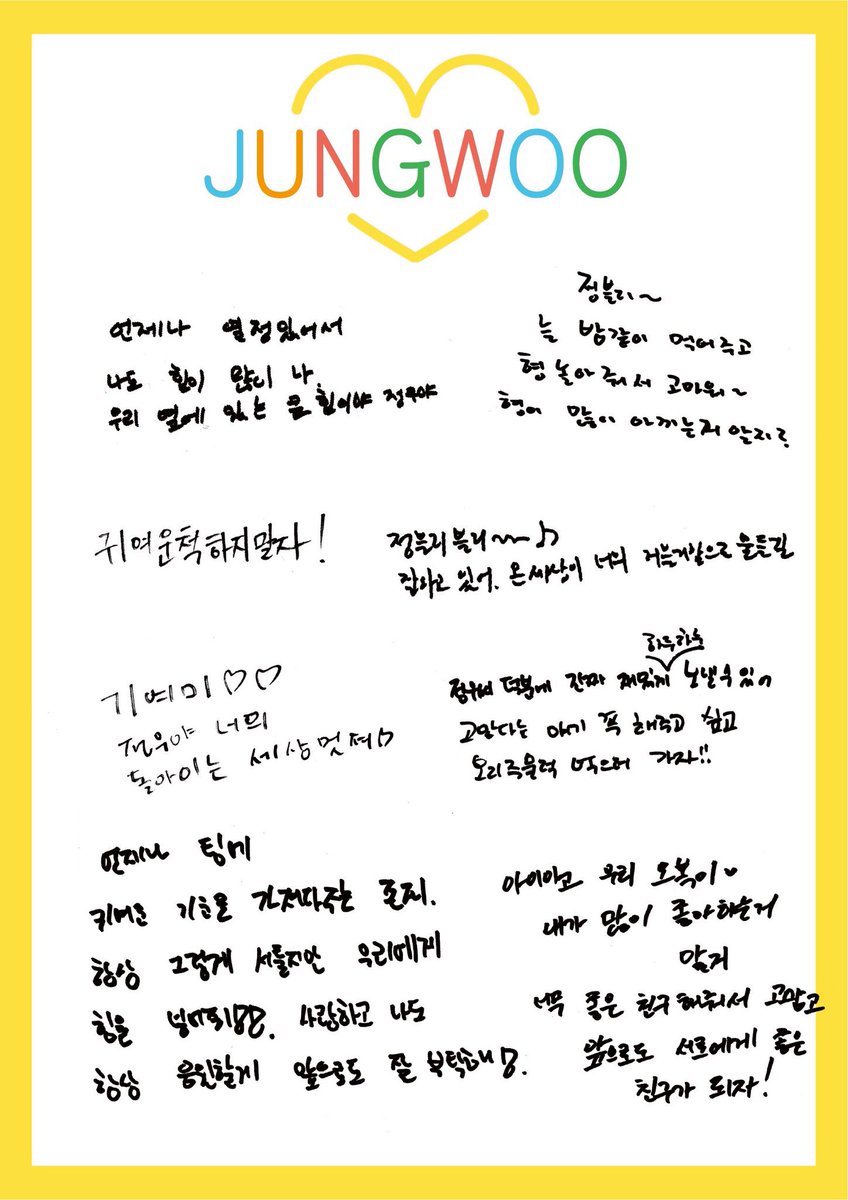 JUNGWOO
언제나 열정있어서
나도 힘이 많이 나.
우리 옆에 있는 큰 힘이야 정우야
정블리~
늘 밤같이 먹어주고
형 놀아줘서 고마워~
형이 많이 아끼는거 알지?
귀여운척하지말자!
정블리블리~~♪
잘하고 있어. 온세상이 너의 러블리함으로 물들길
기여미♡♡
정우야 너의
돌아이는 세상멋져♪
정우씨 덕분에 진짜 하루하루 재밌게 보낼수있어
고맙다는 얘기 꼭 해주고 싶고
오리주물럭 먹으러 가자!!
언제나 팀에
귀여운 기운을 가져다주는 존재.
항상 그렇게 서툴지만 우리에게
힘을 사랑하고 나도
항상 응원할게 앞으로도 잘 부탁해♡.
아이야고 우리 오복이♥
내가 많이 좋아하는거
알지
너무 좋은 친구해줘서 고맙고
앞으로도 서로에게 좋은
친구가 되자!